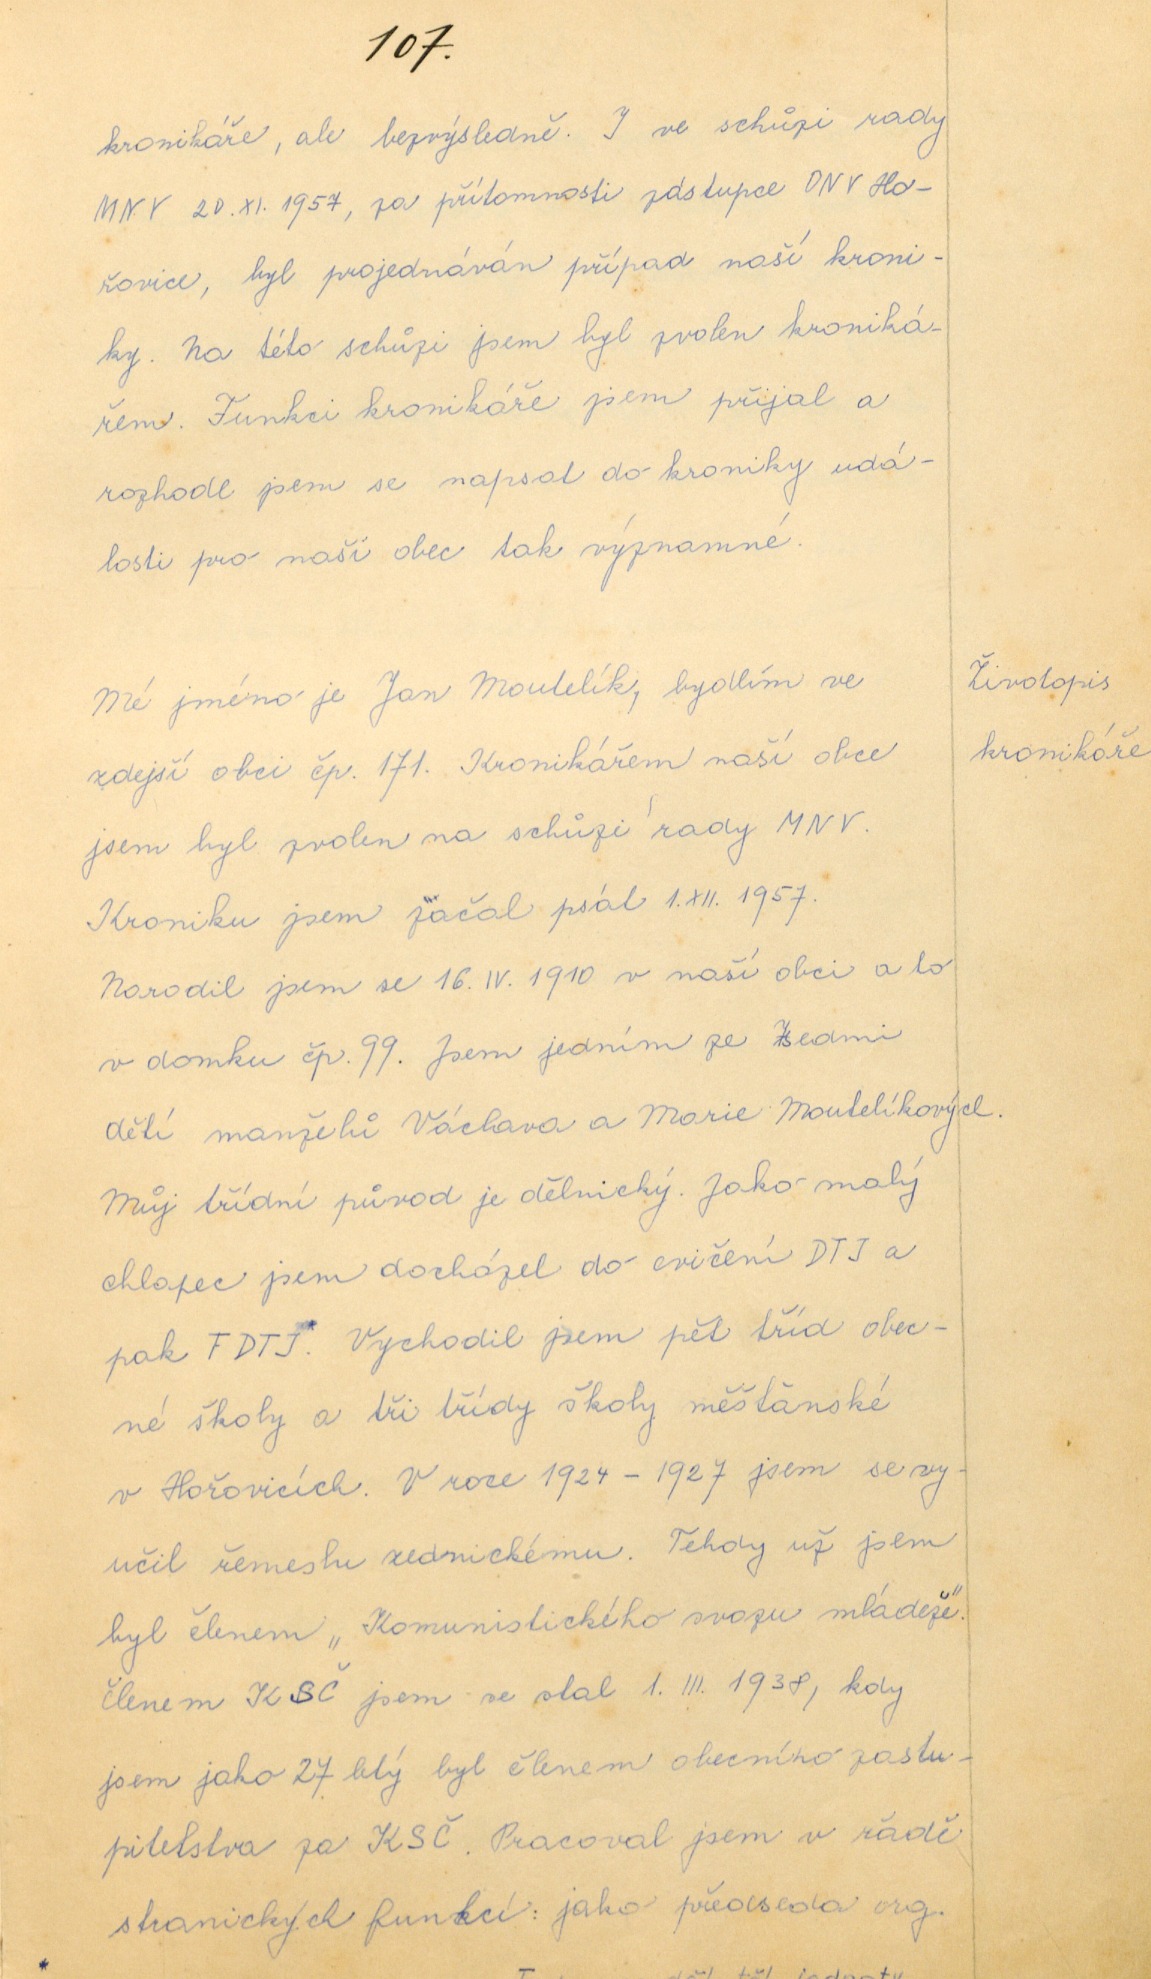 107.
kronikáře, ale bezvýsledně. I ve schůzi rady
MNV 20.XI. 1957, za přítomnosti zástupce ONV Ho-
řovice, byl projednáván případ naší kroni-
ky. Na této schůzi jsem byl zvolen kroniká-
řem. Funkci kronikáře jsem přijal a
rozhodl jsem se napsat do kroniky udá-
losti pro naši obec tak významné.
Mé jméno je Jan Moutelík, bydlím ve
Životopis
zdejší obci čp. 171. Kronikářem naší obce
kronikáře
jsem byl zvolen na schůzi rady MNV.
Kroniku jsem začal psát 1.XII. 1957.
Narodil jsem se 16. IV. 1910 v naší obci a to
v domku čp. 99. Jsem jedním ze sedmi
dětí manželů Václava a Marie Moutelíkových.
Můj třídní původ je dělnický. Jako malý
chlapec jsem docházel do cvičení DTJ a
pak FDTJ*. Vychodil jsem pět tříd obec-
né školy a tři třídy školy měšťanské
v Hořovicích. V roce 1924 - 1927 jsem se vy-
učil řemeslu zednickému. Tehdy už jsem
byl členem „Komunistického svazu mládeže".
Členem KSČ jsem se stal 1. III. 1938, kdy
jsem jako 27 letý byl členem obecního zastu-
pitelstva za KSČ. Pracoval jsem v řadě
stranických funkcí: jako předseda org.
*